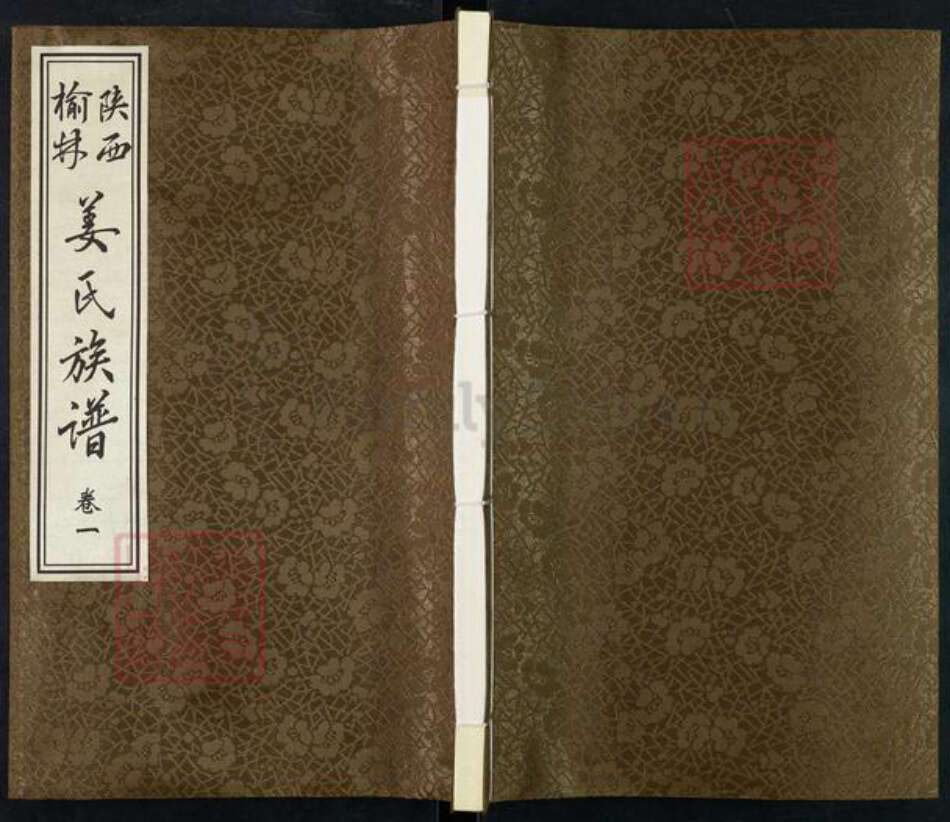 陕西
榆林
姜氏族谱
卷一